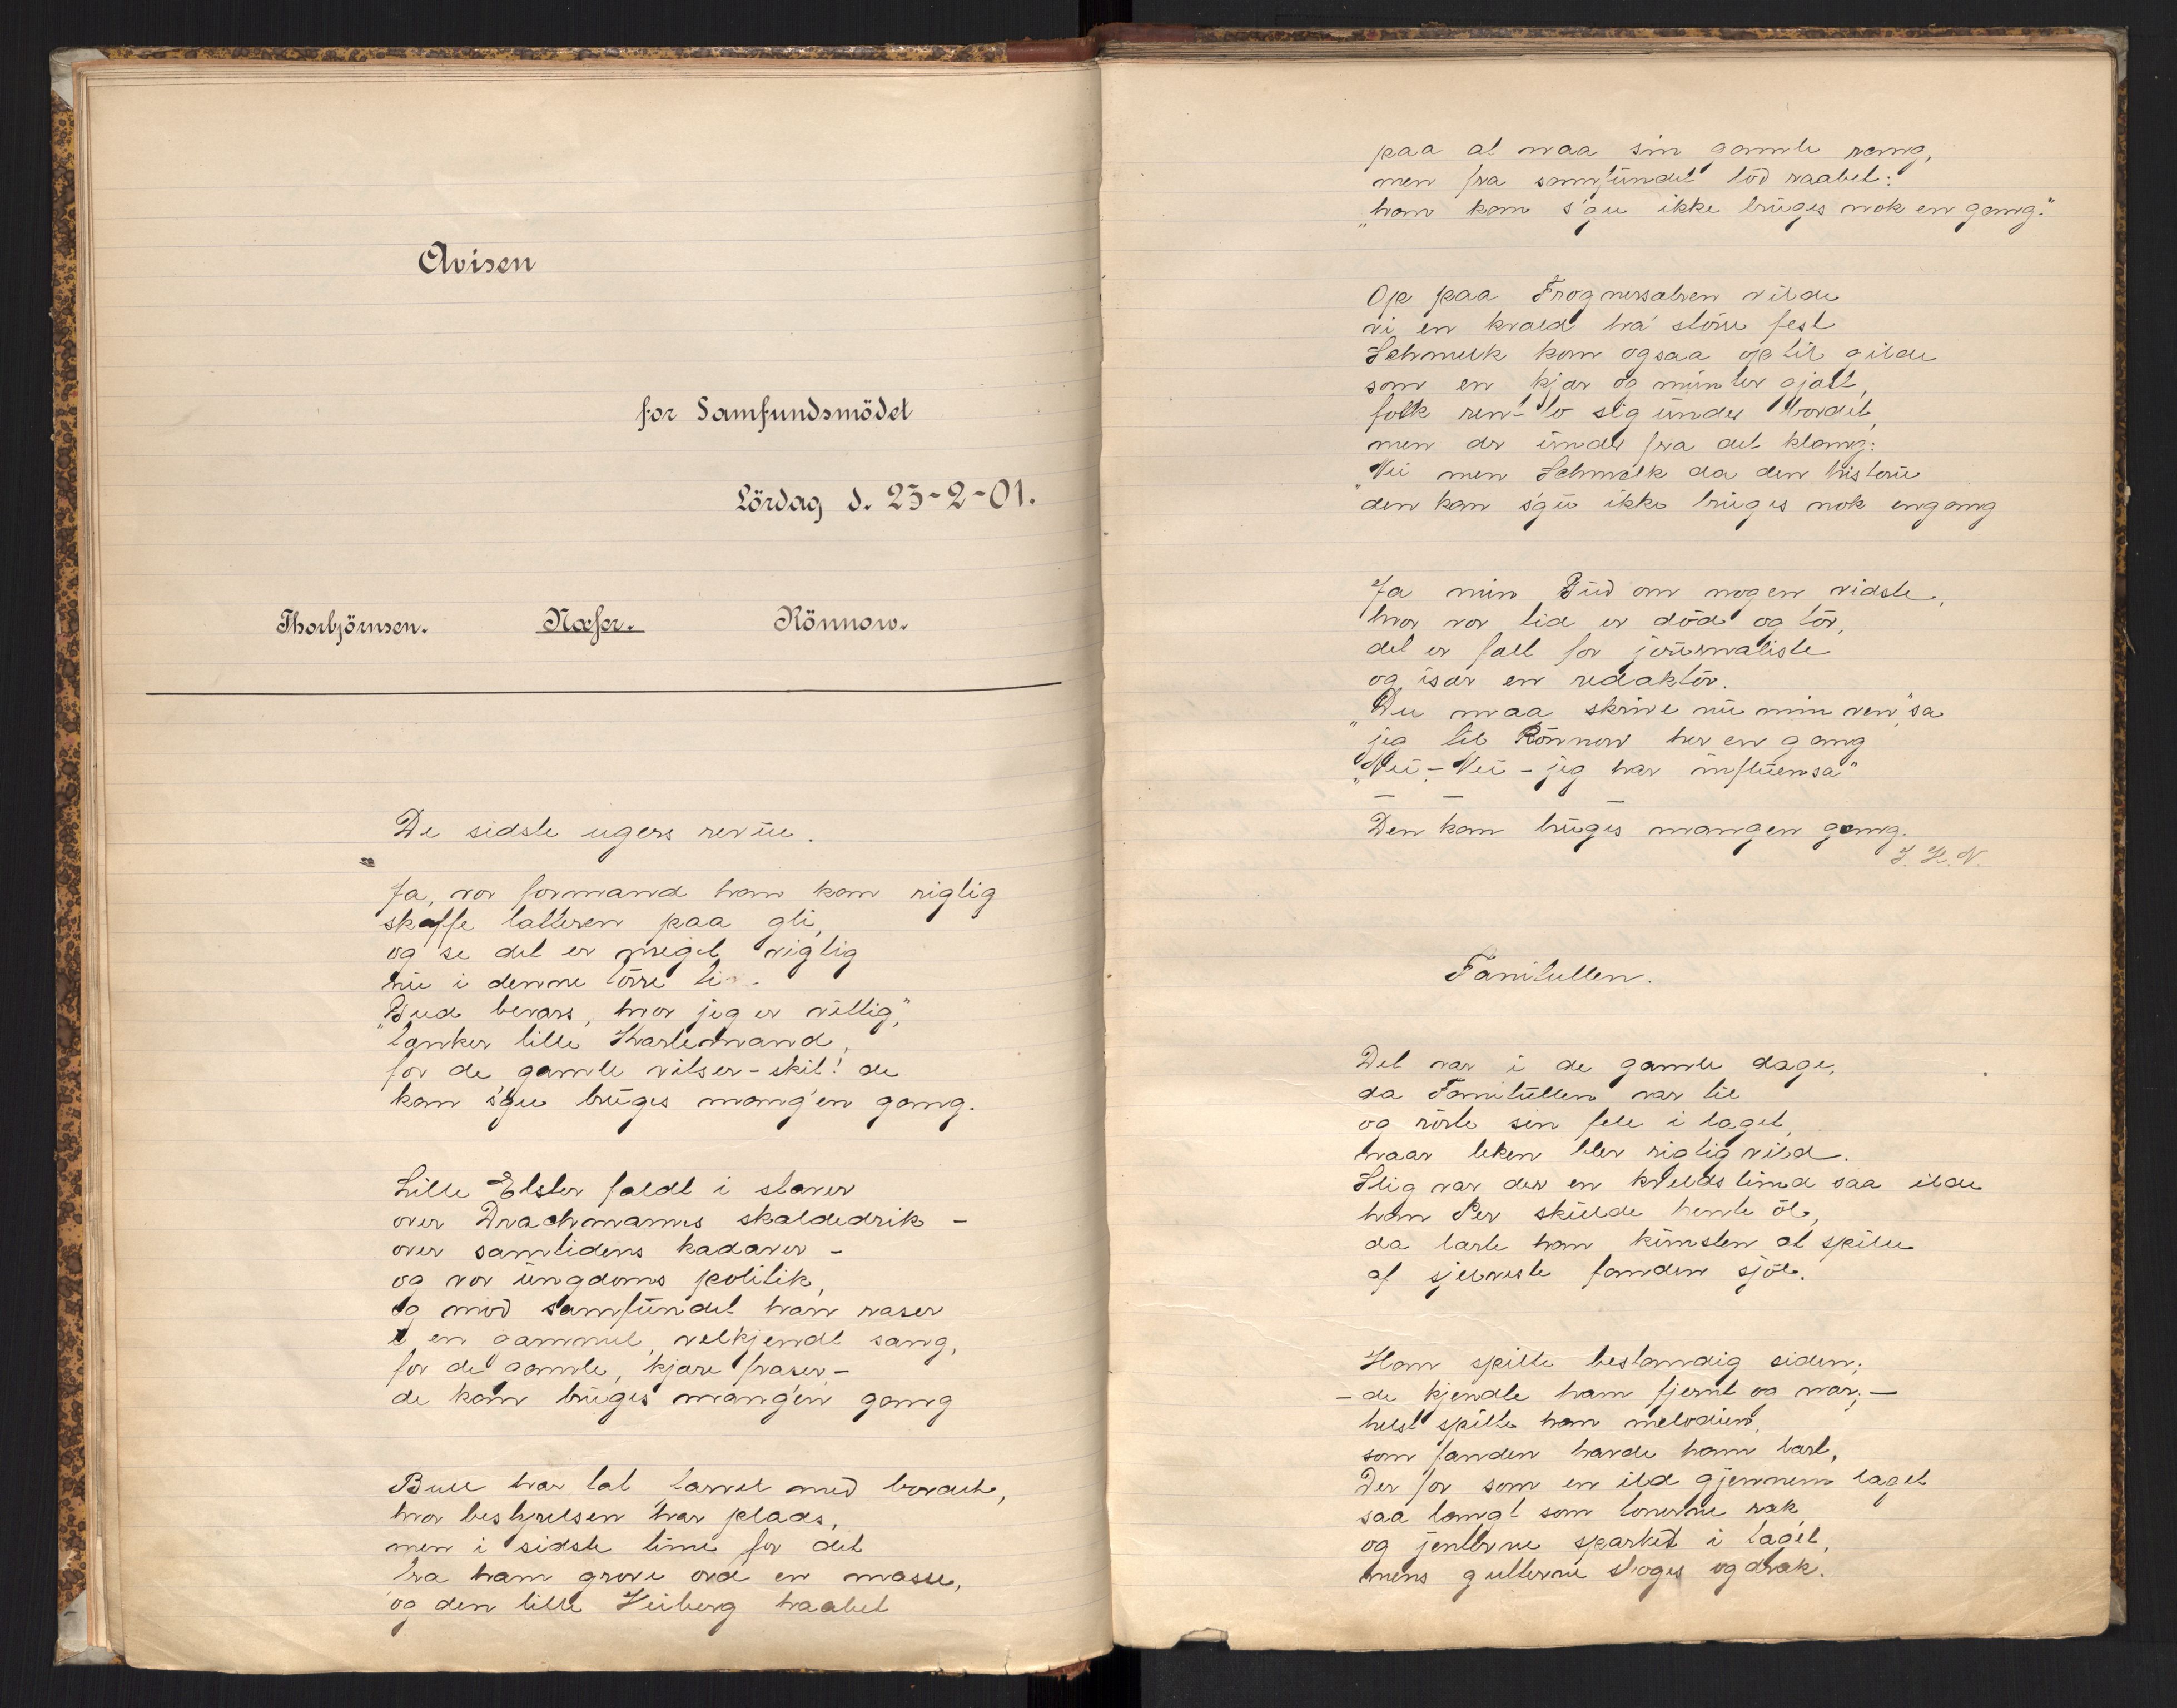 Avisen
for Samfundsmödet
Lördag d. 23-2-01.
Thorbjörnsen. Næser. Rönnow.
De sidste ugers revüe.
Ja, vor formand han kan rigtig
skaffe latteren paa gli,
og se det er meget vigtig
nu i denne törre ti
"Gud bevars, hvor jeg er vittig,"
tænker lille Karlemand,
for de gamle vitser - skit! de
kan s'gu brüges mang'en gang.
Lille Elster faldt i staver
over Drachmanns skaldedrik -
over samtidens kadaver -
og vor üngdoms politik,
og mod samfündet han raser
i en gammel, velkjendt sang,
for de gamle, kjære fraser -
de kan brüges mang'en gang
Bull har tat tarvel med bordet,
hvor bestyrelsen har plads,
men i sidste time for det
fra ham grove ord en masse,
og den lille Heiberg haabet
paa at naa sin gamle rang,
men fra samfündet löd raabet:
"han kan s'gu ikke brüges nok en gang."
Op paa Frognersætren vilde
vi en kvæld ha' större fest
Schmelk kom ogsaa op til gilde
som en kjær og münter gjæst,
folk rent lo sig ünder bordet,
men der ünder fra det klang:
"Nei men Schmelk da den historie
den kan s'gü ikke brüges nok engang
Ja min Güd om nogen vidste,
hvor vor tid er död og tör,
det er fælt for journaliste
og især en redaktör.
"Du maa skrive nü min ven", sa
jeg til Rönnow her en gang
"Nei - Nei - jeg har inflüensa"
Den kan brüges mangen gang.
J. H. N.
Fanitullen.
Det var i de gamle dage,
da Fanitüllen var til
og rörte sin fele i laget,
naar leken blev rigtig vild.
Slig var der en kveldstünd saa ilde
han Per skülde hente öl,
da lærte han künsten at spille
af sjelveste fanden sjöl.
Han spilte bestandig siden;
- de kjendte ham fjernt og nær; -
helst spilte han melodien,
som fanden havde ham lært,
Der for som en ild gjennem laget
saa langt som tonerne rak,
og jenterne sparket i taget,
mens gutterne sloges og drak.